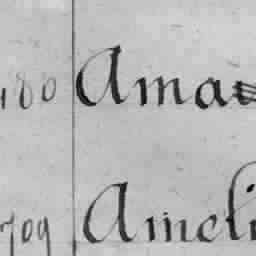 180 Ama
709 Ameli